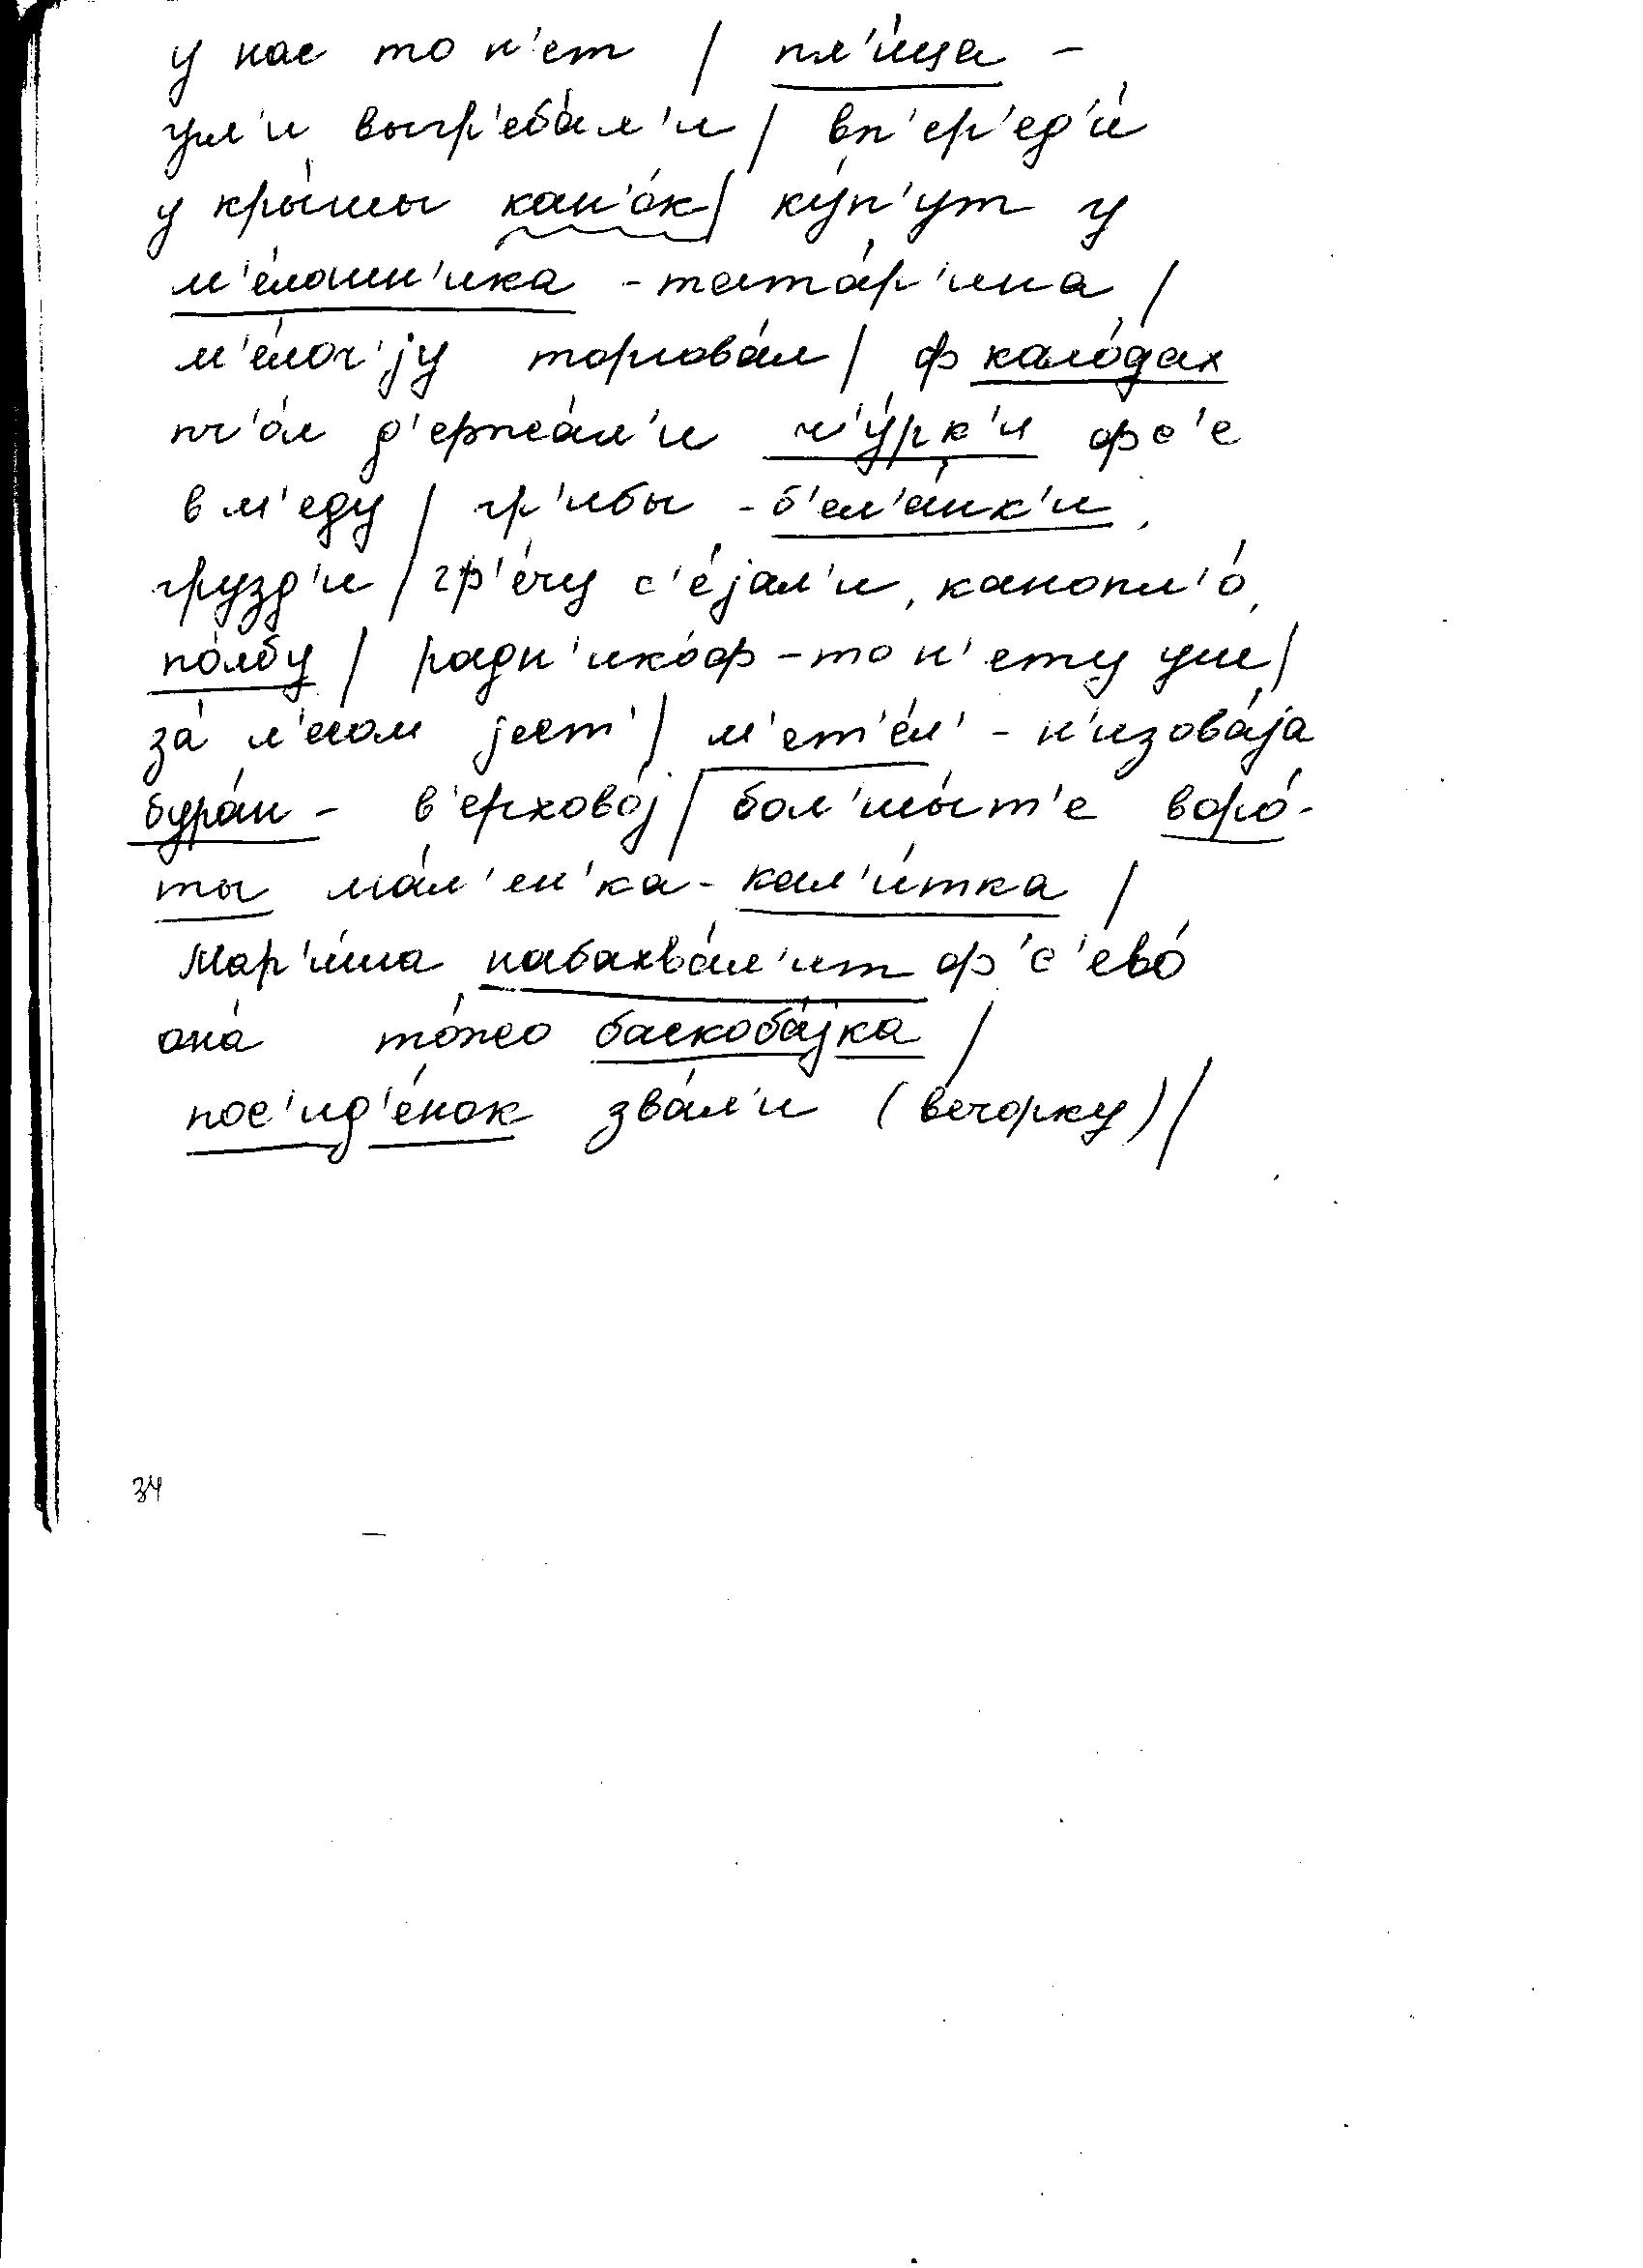 у нас то н'ет / пл'и́ца –
угл'и выгр'еба́л'и / вп'ер'ед'и́
у кры́шы кан'о́к / ку́п'ут у
м'е́лошн'ика - тата́р'ина /
м'е́лоч'jу торгова́л / ф кало́дах
пч'о́л д'ержа́л'и ч'у́рк'и фс'е
в м'еду / гр'ибы - б'ел'а́нк'и,
грузд'и / гр'е́чу с'е́jал'и, канопл'о́,
по́лбу / родн'ико́ф - то н'ету уш /
за́ л'есом jест' / м'ет'е́л' - н'изова́jа
бура́н - в'ерхово́j / бол'шы́т'е воро́-
ты ма́л'ен'ка - кал'и́тка /
Мар'и́на набахва́л'ит ф'с'ево́
она́ то́жо баскоба́jка /
пос'ид'е́нок зва́л'и (ве́чорку) /
34